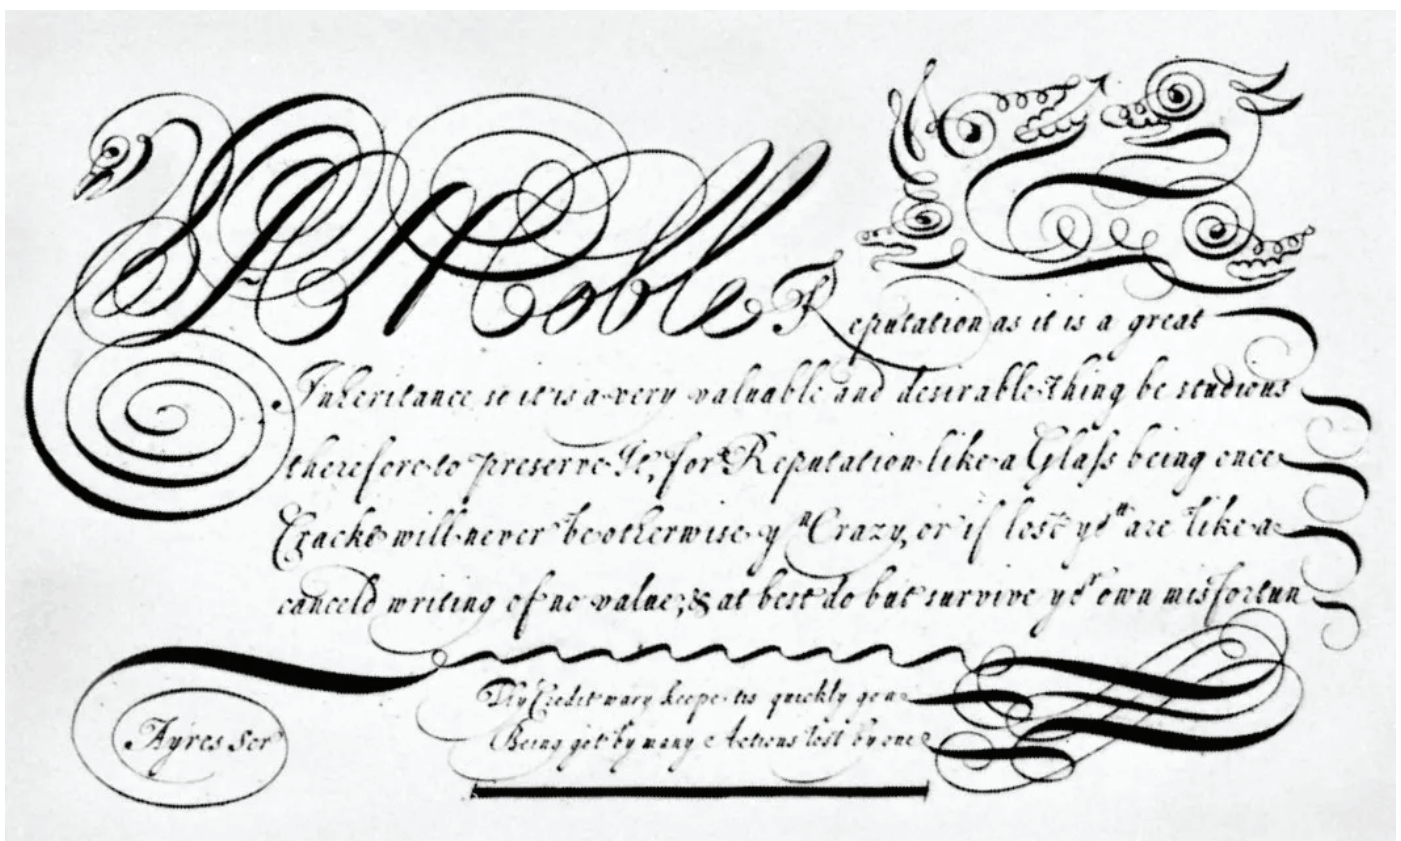 A Noble Reputation as it is a great
Inheritance so it is a very valuable and desirable thing be studious
therefore to preserve It, for Reputation like a Glaſs being once
Crackt will never be otherwise yⁿ Crazy, or if lost yⁿ are like a
cancel'd writing of no value, & at best do but survive yʳ own misfortun
Thy Credit wary keepe tis quickly gon
Being got by many Actions lost by one
Ayres scr